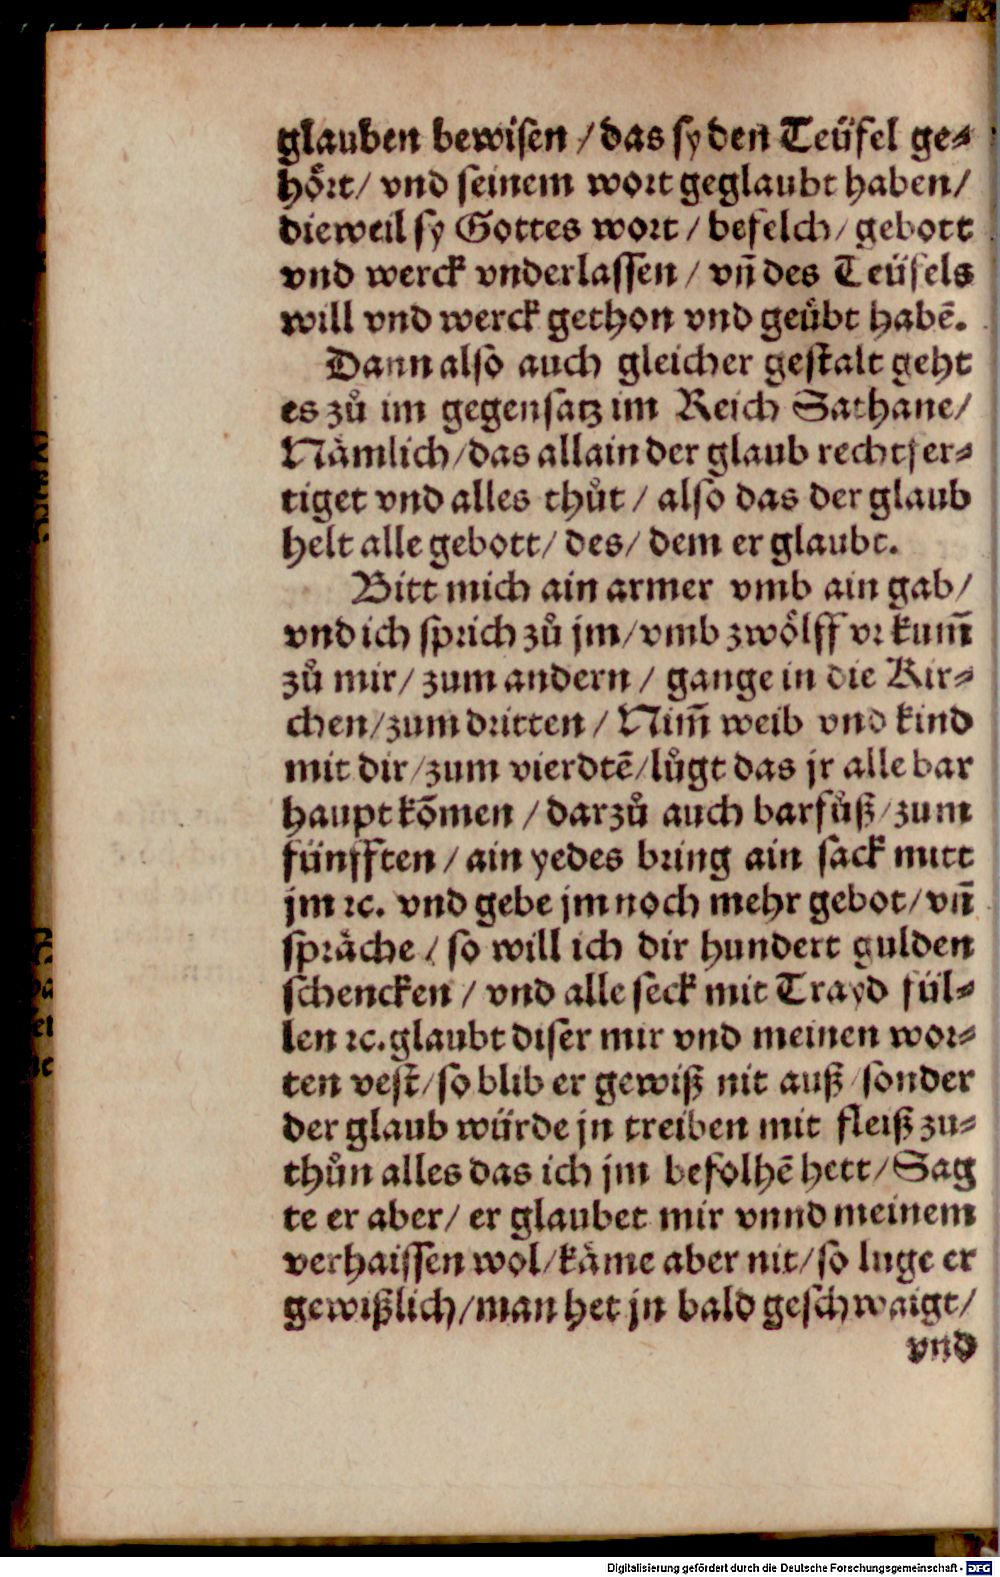 glauben bewisen / das sy den Teüfel ge⸗
hört / vnd seinem wort geglaubt haben /
dieweil sy Gottes wort / befelch / gebott
vnd werck vnderlassen / vñ des Teüfels
will vnd werck gethon vnd geübt habẽ.
Dann also auch gleicher gestalt geht
es zů im gegensatz im Reich Sathane /
Nämlich / das allain der glaub rechtfer⸗
tiget vnd alles thůt / also das der glaub
helt alle gebott / des / dem er glaubt.
Bitt mich ain armer vmb ain gab /
vnd ich sprich zů jm / vmb zwölff vr kum̃
zů mir / zum andern / gange in die Kir⸗
chen / zum dritten / Nim̃ weib vnd kind
mit dir / zum vierdtẽ / lůgt das jr alle bar
haupt kõmen / darzů auch barfůß / zum
fünfften / ain yedes bring ain sack mitt
jm ꝛc. vnd gebe jm noch mehr gebot / vñ
spräche / so will ich dir hundert gulden
schencken / vnd alle seck mit Trayd fül⸗
len ꝛc. glaubt diser mir vnd meinen wor⸗
ten vest / so blib er gewiß nit auß / sonder
der glaub würde jn treiben mit fleiß zu⸗
thůn alles das ich jm befolhẽ hett / Sag
te er aber / er glaubet mir vnnd meinem
verhaissen wol / käme aber nit / so luge er
gewißlich / man het jn bald geschwaigt /
vnd
Digitalisierung gefördert durch die Deutsche Forschungsgemeinschaft - DFG